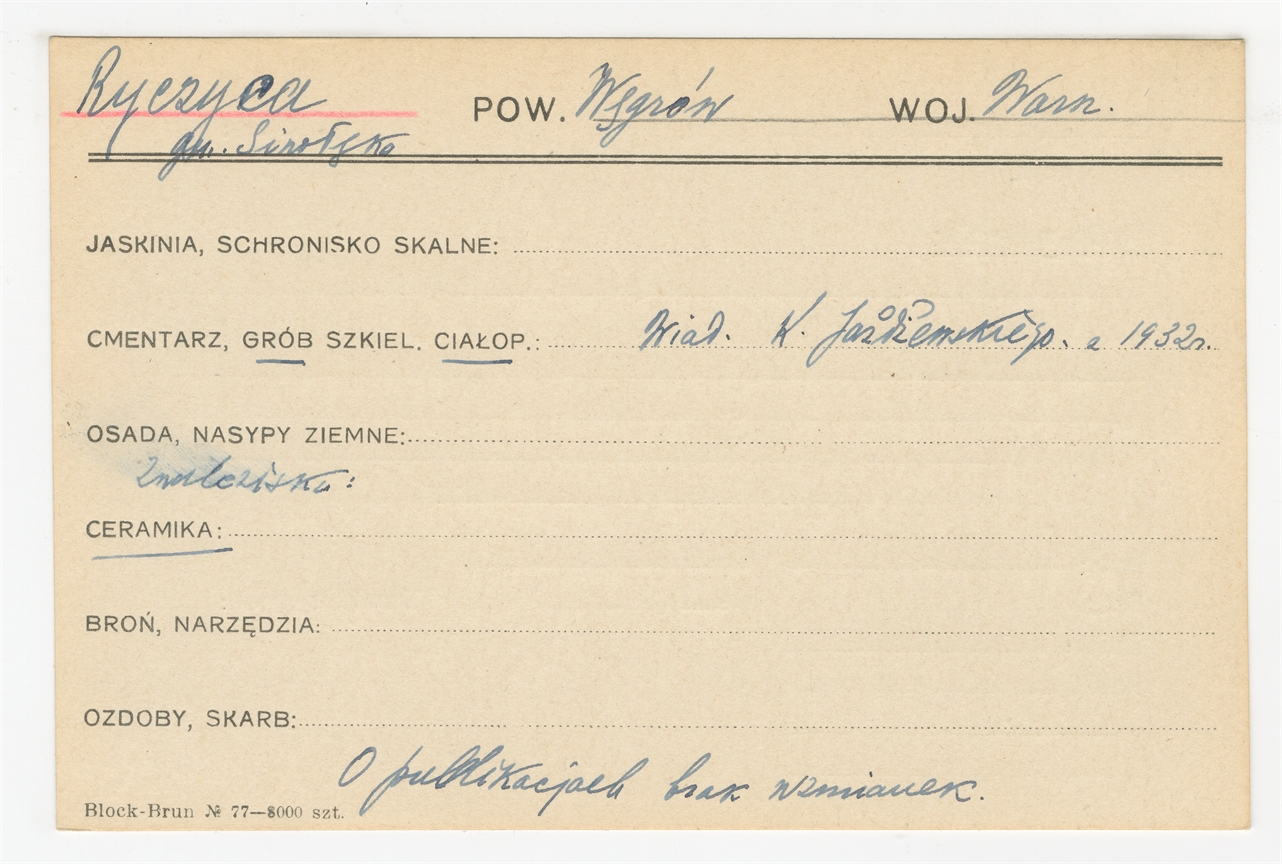 Ryczyca POW. Węgrów WOJ. Warsz.
gm.
JASKINIA, SCHRONISKO SKALNE:
CMENTARZ, GRÓB SZKIEL. CIAŁOP.: Wiad. K. Jażdżewskiego. z 1932r.
OSADA, NASYPY ZIEMNE:
Znalezisko:
CERAMIKA:
BROŃ, NARZĘDZIA:
OZDOBY, SKARB:
O publikacjach brak wzmianek.
Block-Brun № 77—8000 szt.